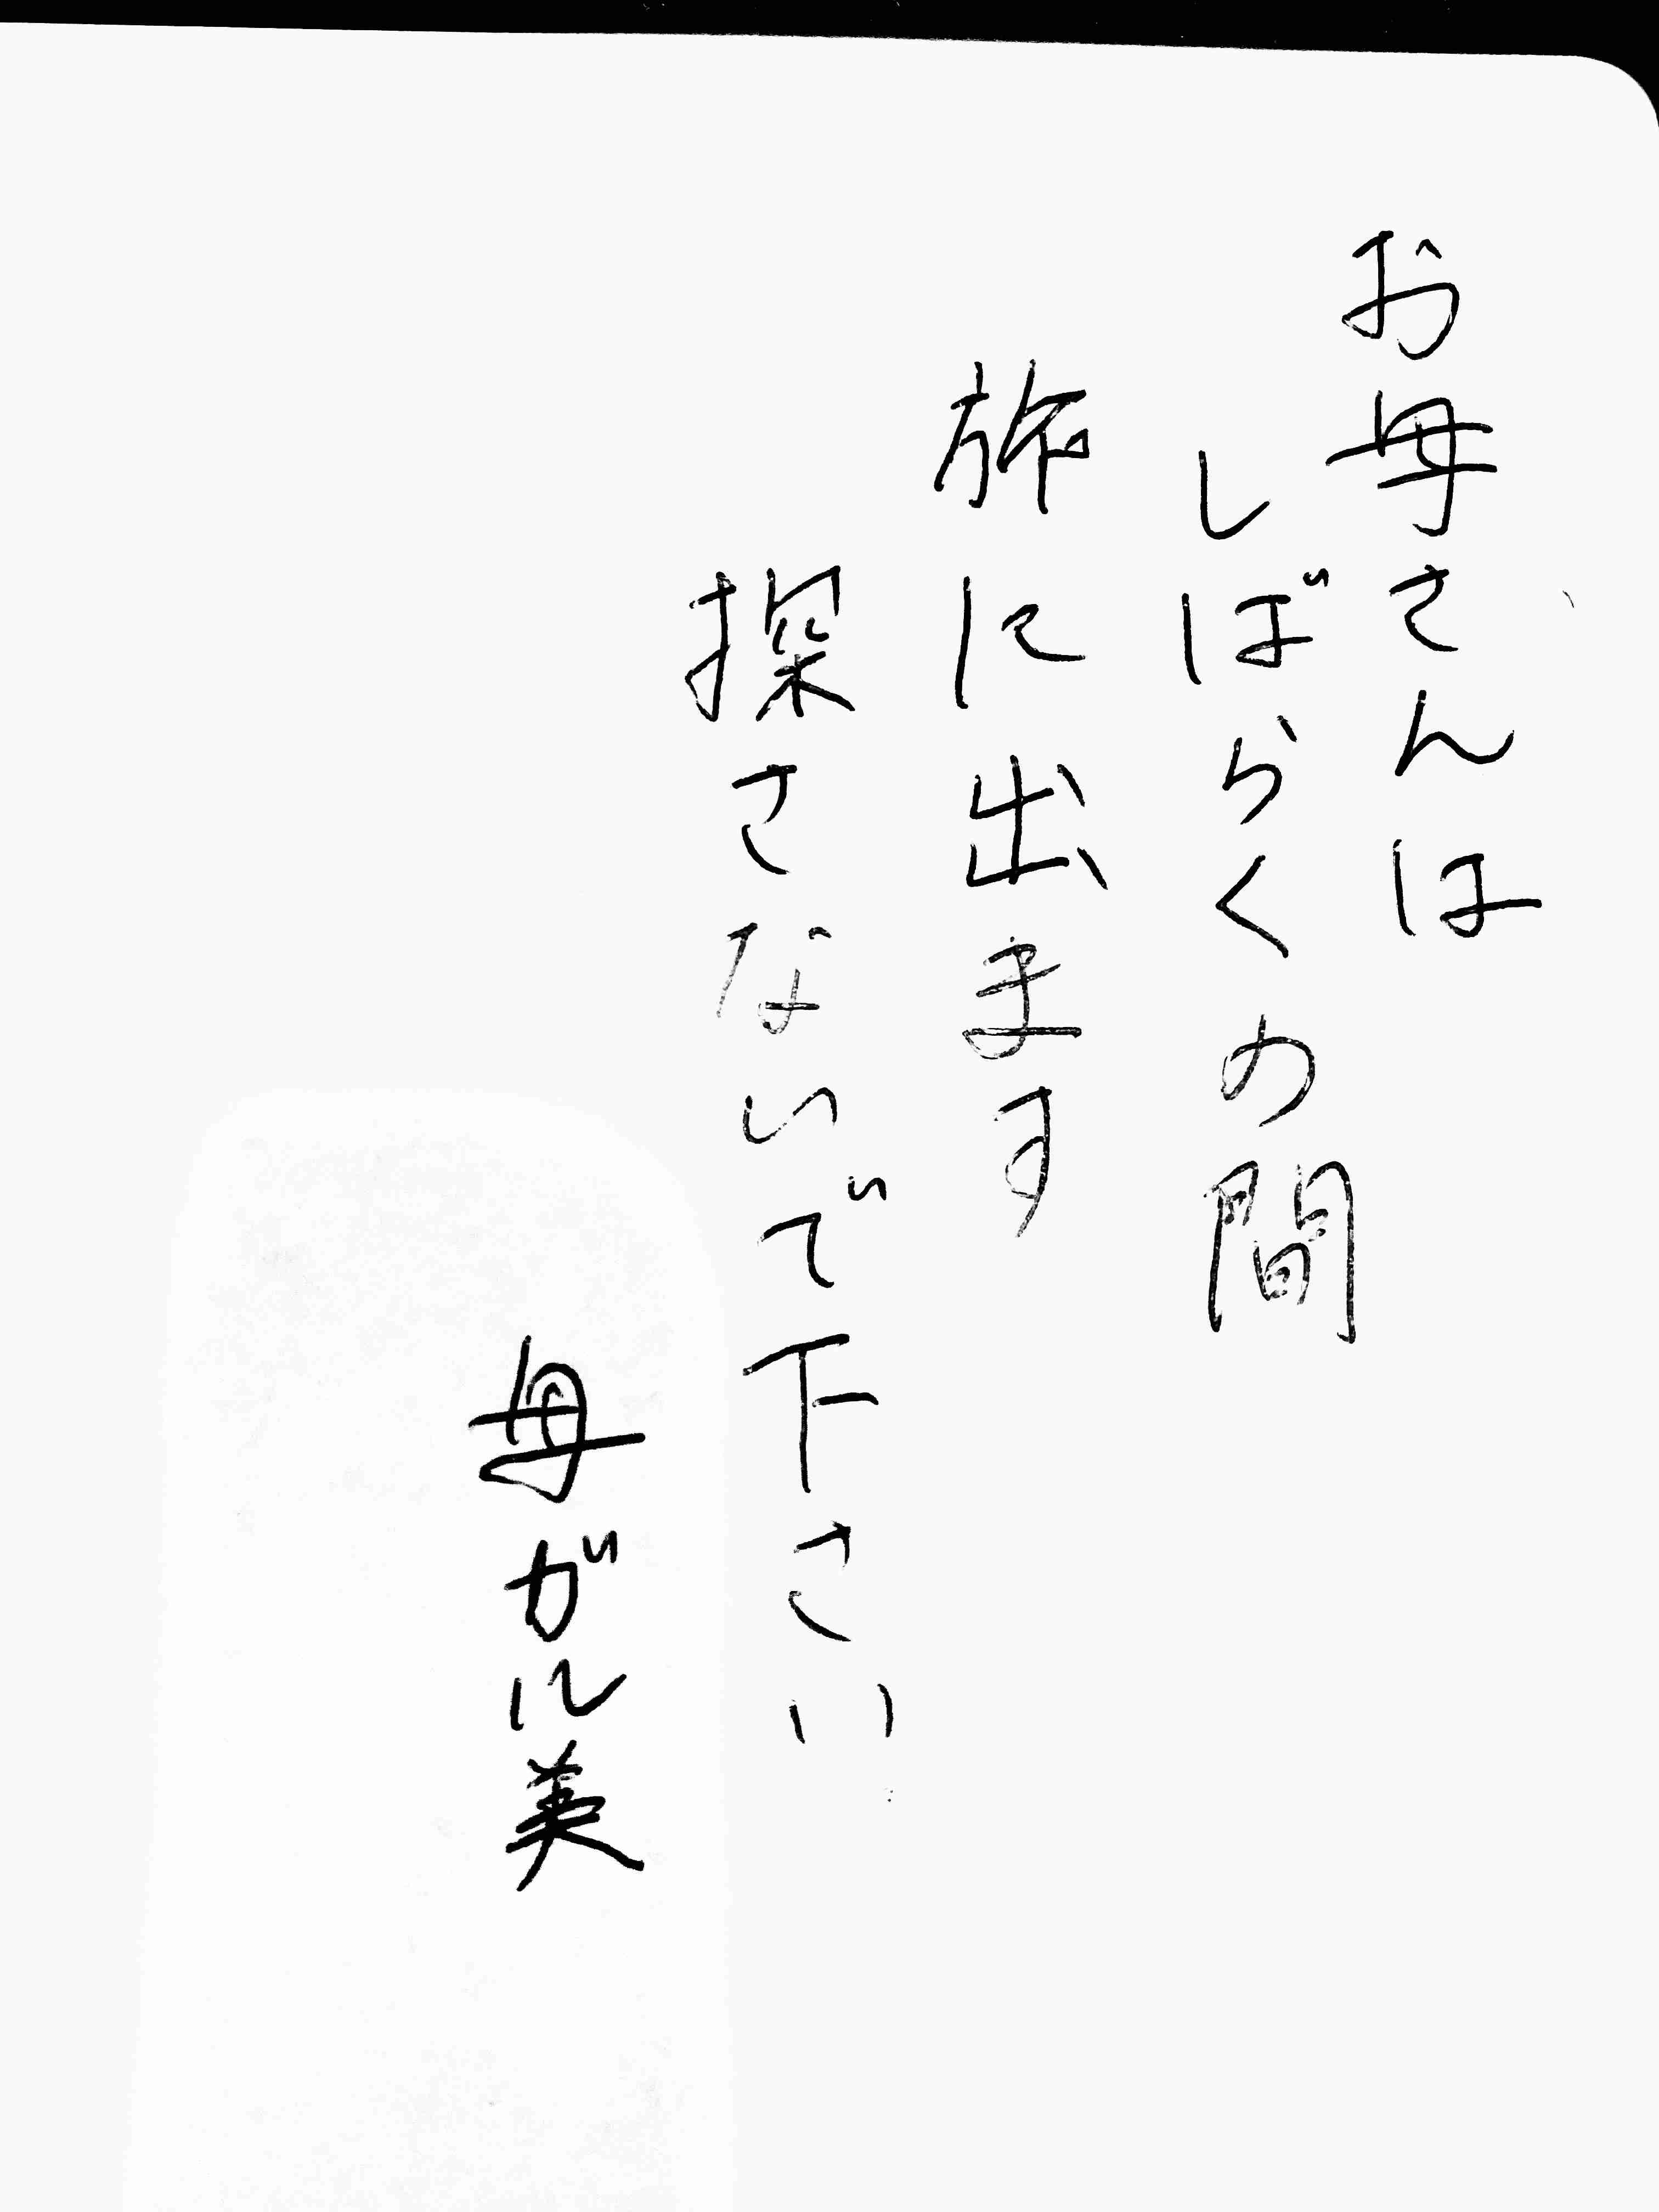 お母さんは
しばらくの間
旅に出ます
探さないで下さい
母がル美